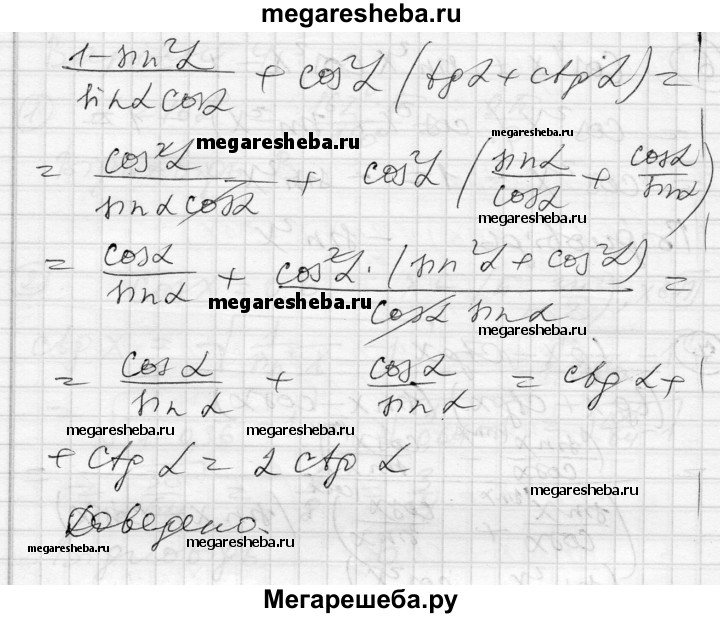 megaresheba.ru
(1-sin²α)/(sinα cosα) + cos²α (tgα + ctgα) =
megaresheba.ru
= cos²α/(sinα cosα) + cos²α (sinα/cosα + cosα/sinα)
megaresheba.ru
= cosα/sinα + cos²α·(sin²α + cos²α)/(cosα sinα) =
megaresheba.ru
megaresheba.ru
= cosα/sinα + cosα/sinα = ctgα +
megaresheba.ru megaresheba.ru
+ ctgα = 2 ctgα
megaresheba.ru
Доведено.
megaresheba.ru megaresheba.ru
Мегарешеба.ру